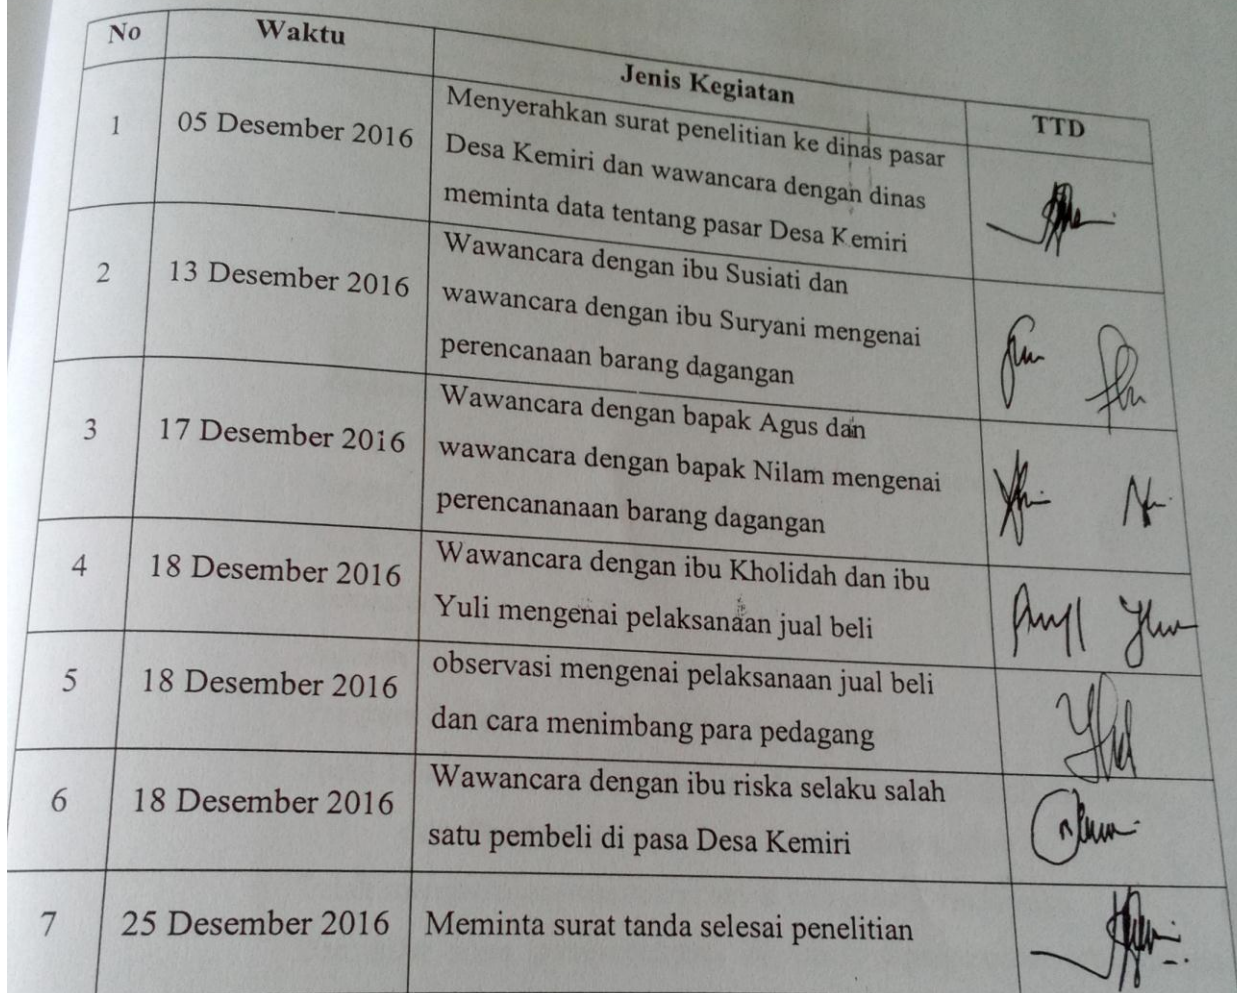 No Waktu Jenis Kegiatan TTD
1 05 Desember 2016 Menyerahkan surat penelitian ke dinas pasar
Desa Kemiri dan wawancara dengan dinas
meminta data tentang pasar Desa Kemiri
2 13 Desember 2016 Wawancara dengan ibu Susiati dan
wawancara dengan ibu Suryani mengenai
perencanaan barang dagangan
3 17 Desember 2016 Wawancara dengan bapak Agus dan
wawancara dengan bapak Nilam mengenai
perencananaan barang dagangan
4 18 Desember 2016 Wawancara dengan ibu Kholidah dan ibu
Yuli mengenai pelaksanaan jual beli
5 18 Desember 2016 observasi mengenai pelaksanaan jual beli
dan cara menimbang para pedagang
6 18 Desember 2016 Wawancara dengan ibu riska selaku salah
satu pembeli di pasa Desa Kemiri
7 25 Desember 2016 Meminta surat tanda selesai penelitian